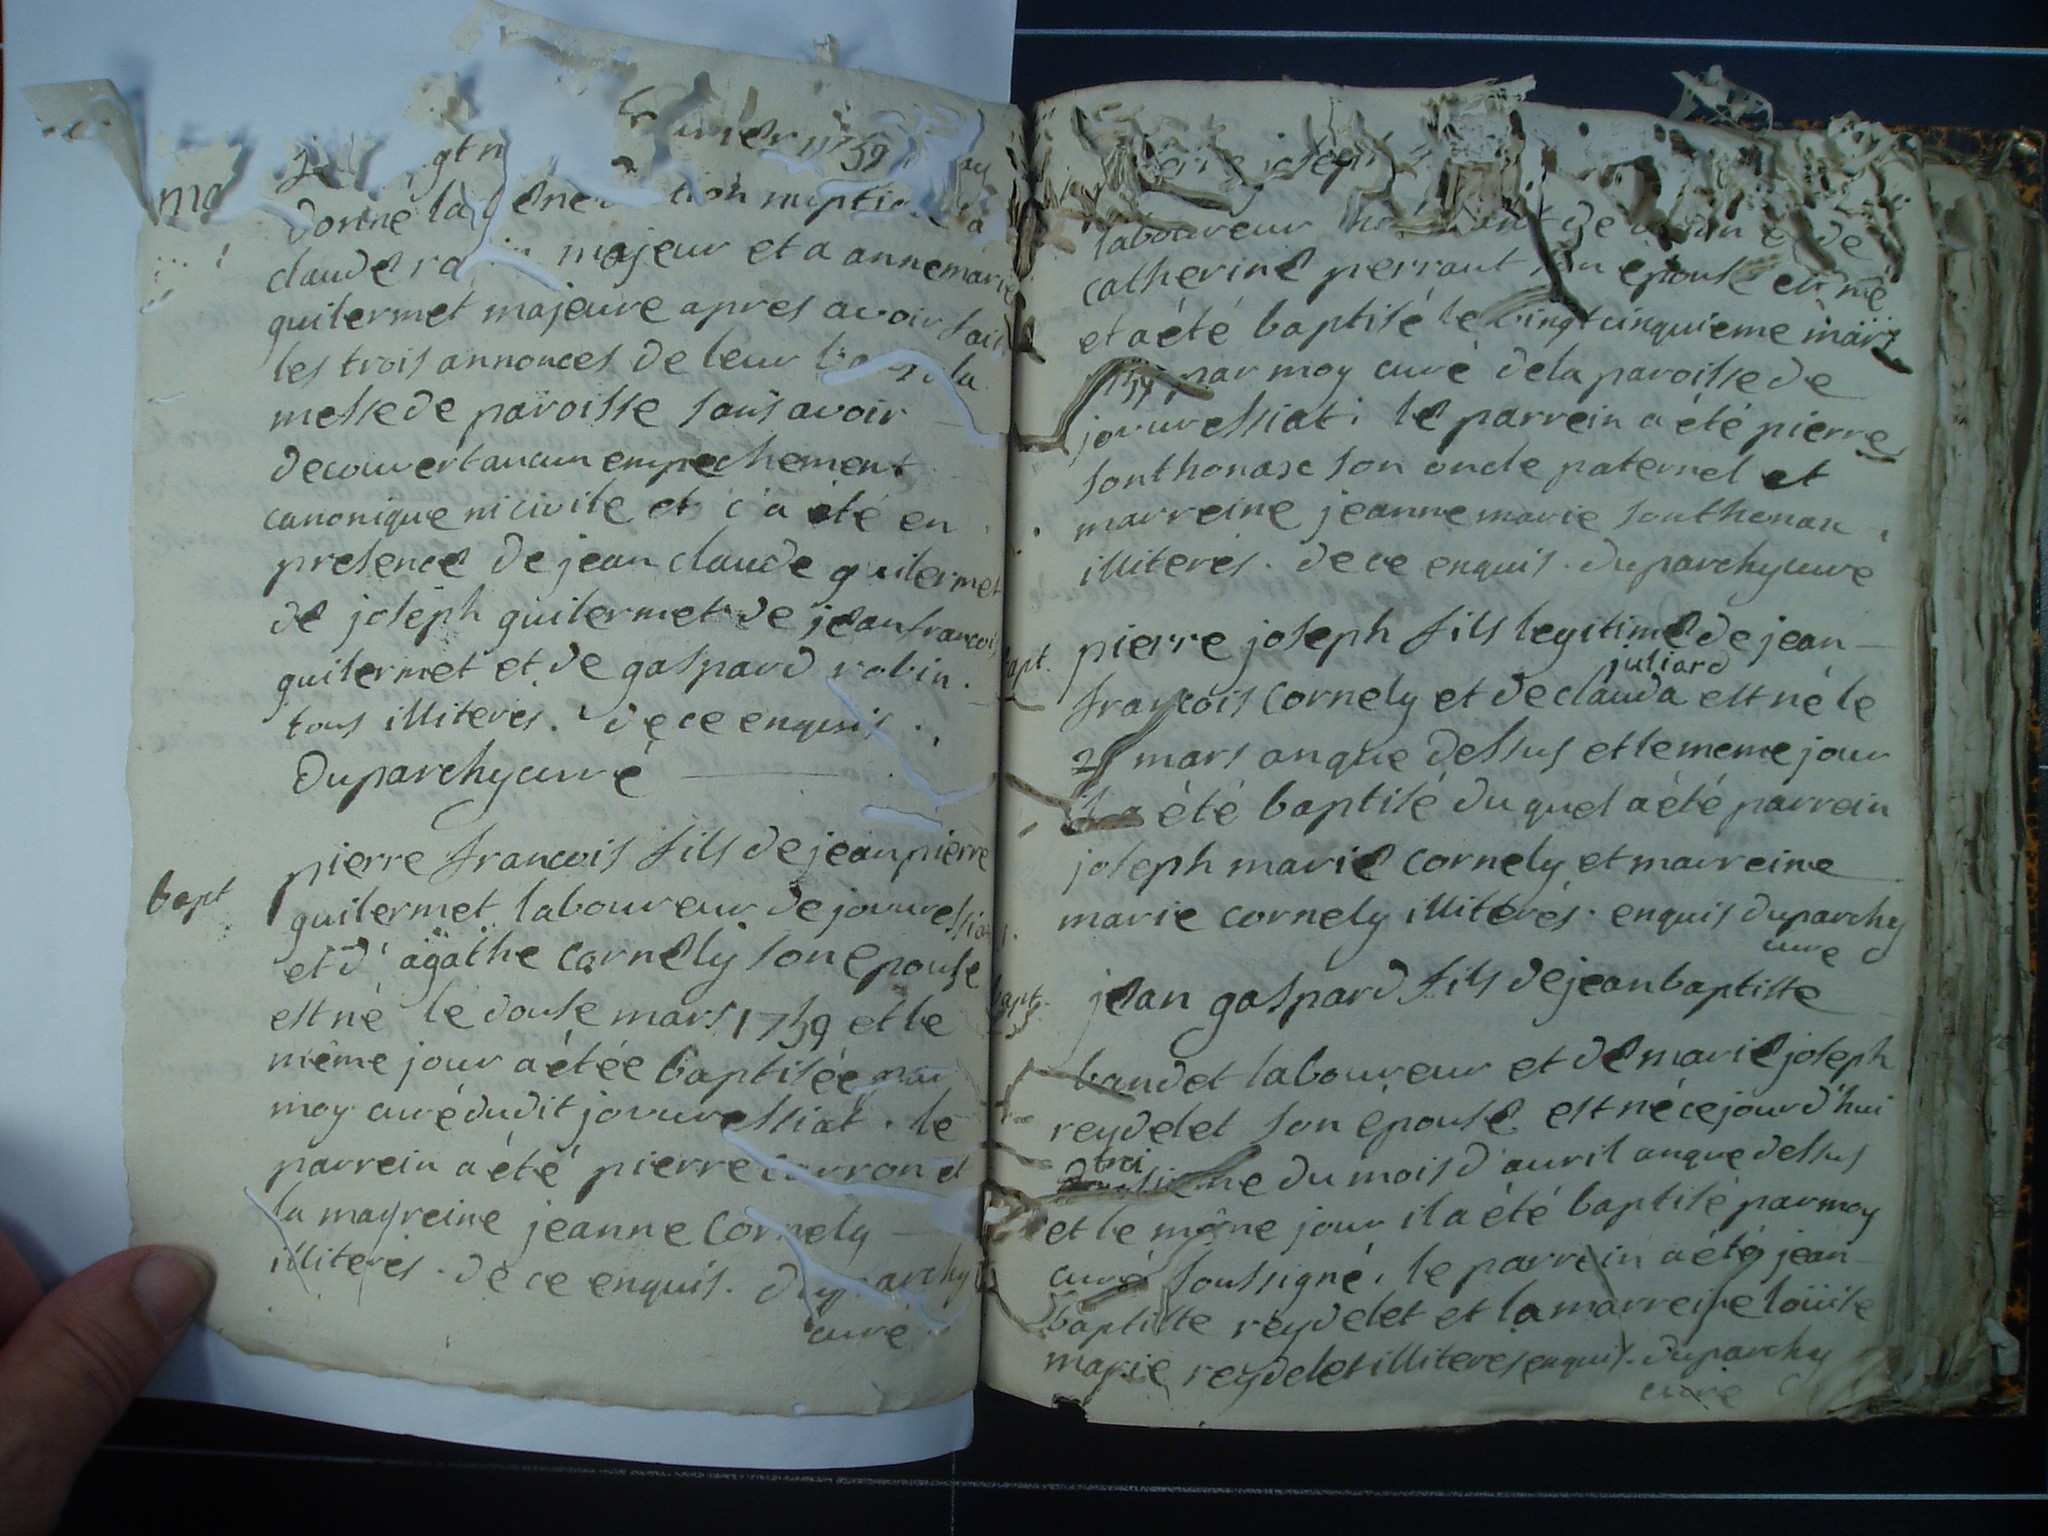 1759
donné la
claude majeur et a anne marie
guilermet majeure apres avoir fait
les trois annonces de leur la
messe de paroisse sans avoir
decouvert aucun empechement
canonique ni civile et ç'a été en
presence de jean claude guilermet
de joseph guilermet de jean francois
guilermet et de gaspard robin.
tous illiterés. de ce enquis.
Duparchy curé
bapt
pierre francois fils de jean pierre
guilermet laboureur de jovuressia
et d'agathe cornely son epouse
est né le douse mars 1759 et le
même jour a étée baptisée par
moy curé dudit jovuressiat. le
parrein a été pierre carron et
la mayreine jeanne cornely
illiterés. de ce enquis. Duparchy
curé
pierre joseph
laboureur de
catherine perraut son epouse est né
et a été baptisé le vingt cinquieme mars
par moy curé de la paroisse de
jovuressiat: le parrein a été pierre
sonthonax son oncle paternel et
marreine jeanne marie sonthonax
illiterés. de ce enquis. duparchy curé
bapt.
pierre joseph fils legitime de jean
juliard
françois cornely et de clauda est né le
mars an que dessus et le meme jour
été baptisé du quel a été parrein
joseph marie cornely et marreine
marie cornely illitérés. enquis duparchy
curé
bapt.
jean gaspard fils de jean baptiste
bandet laboureur et de marie joseph
reydelet son épouse est né ce jourd'hui
troi
sieme du mois d'avril an que dessus
et le même jour il a été baptisé par moy
curé soussigné. le parrein a été jean
baptiste reydelet et la marreine loüise
marie reydelet illiterés enquis. duparchy
curé